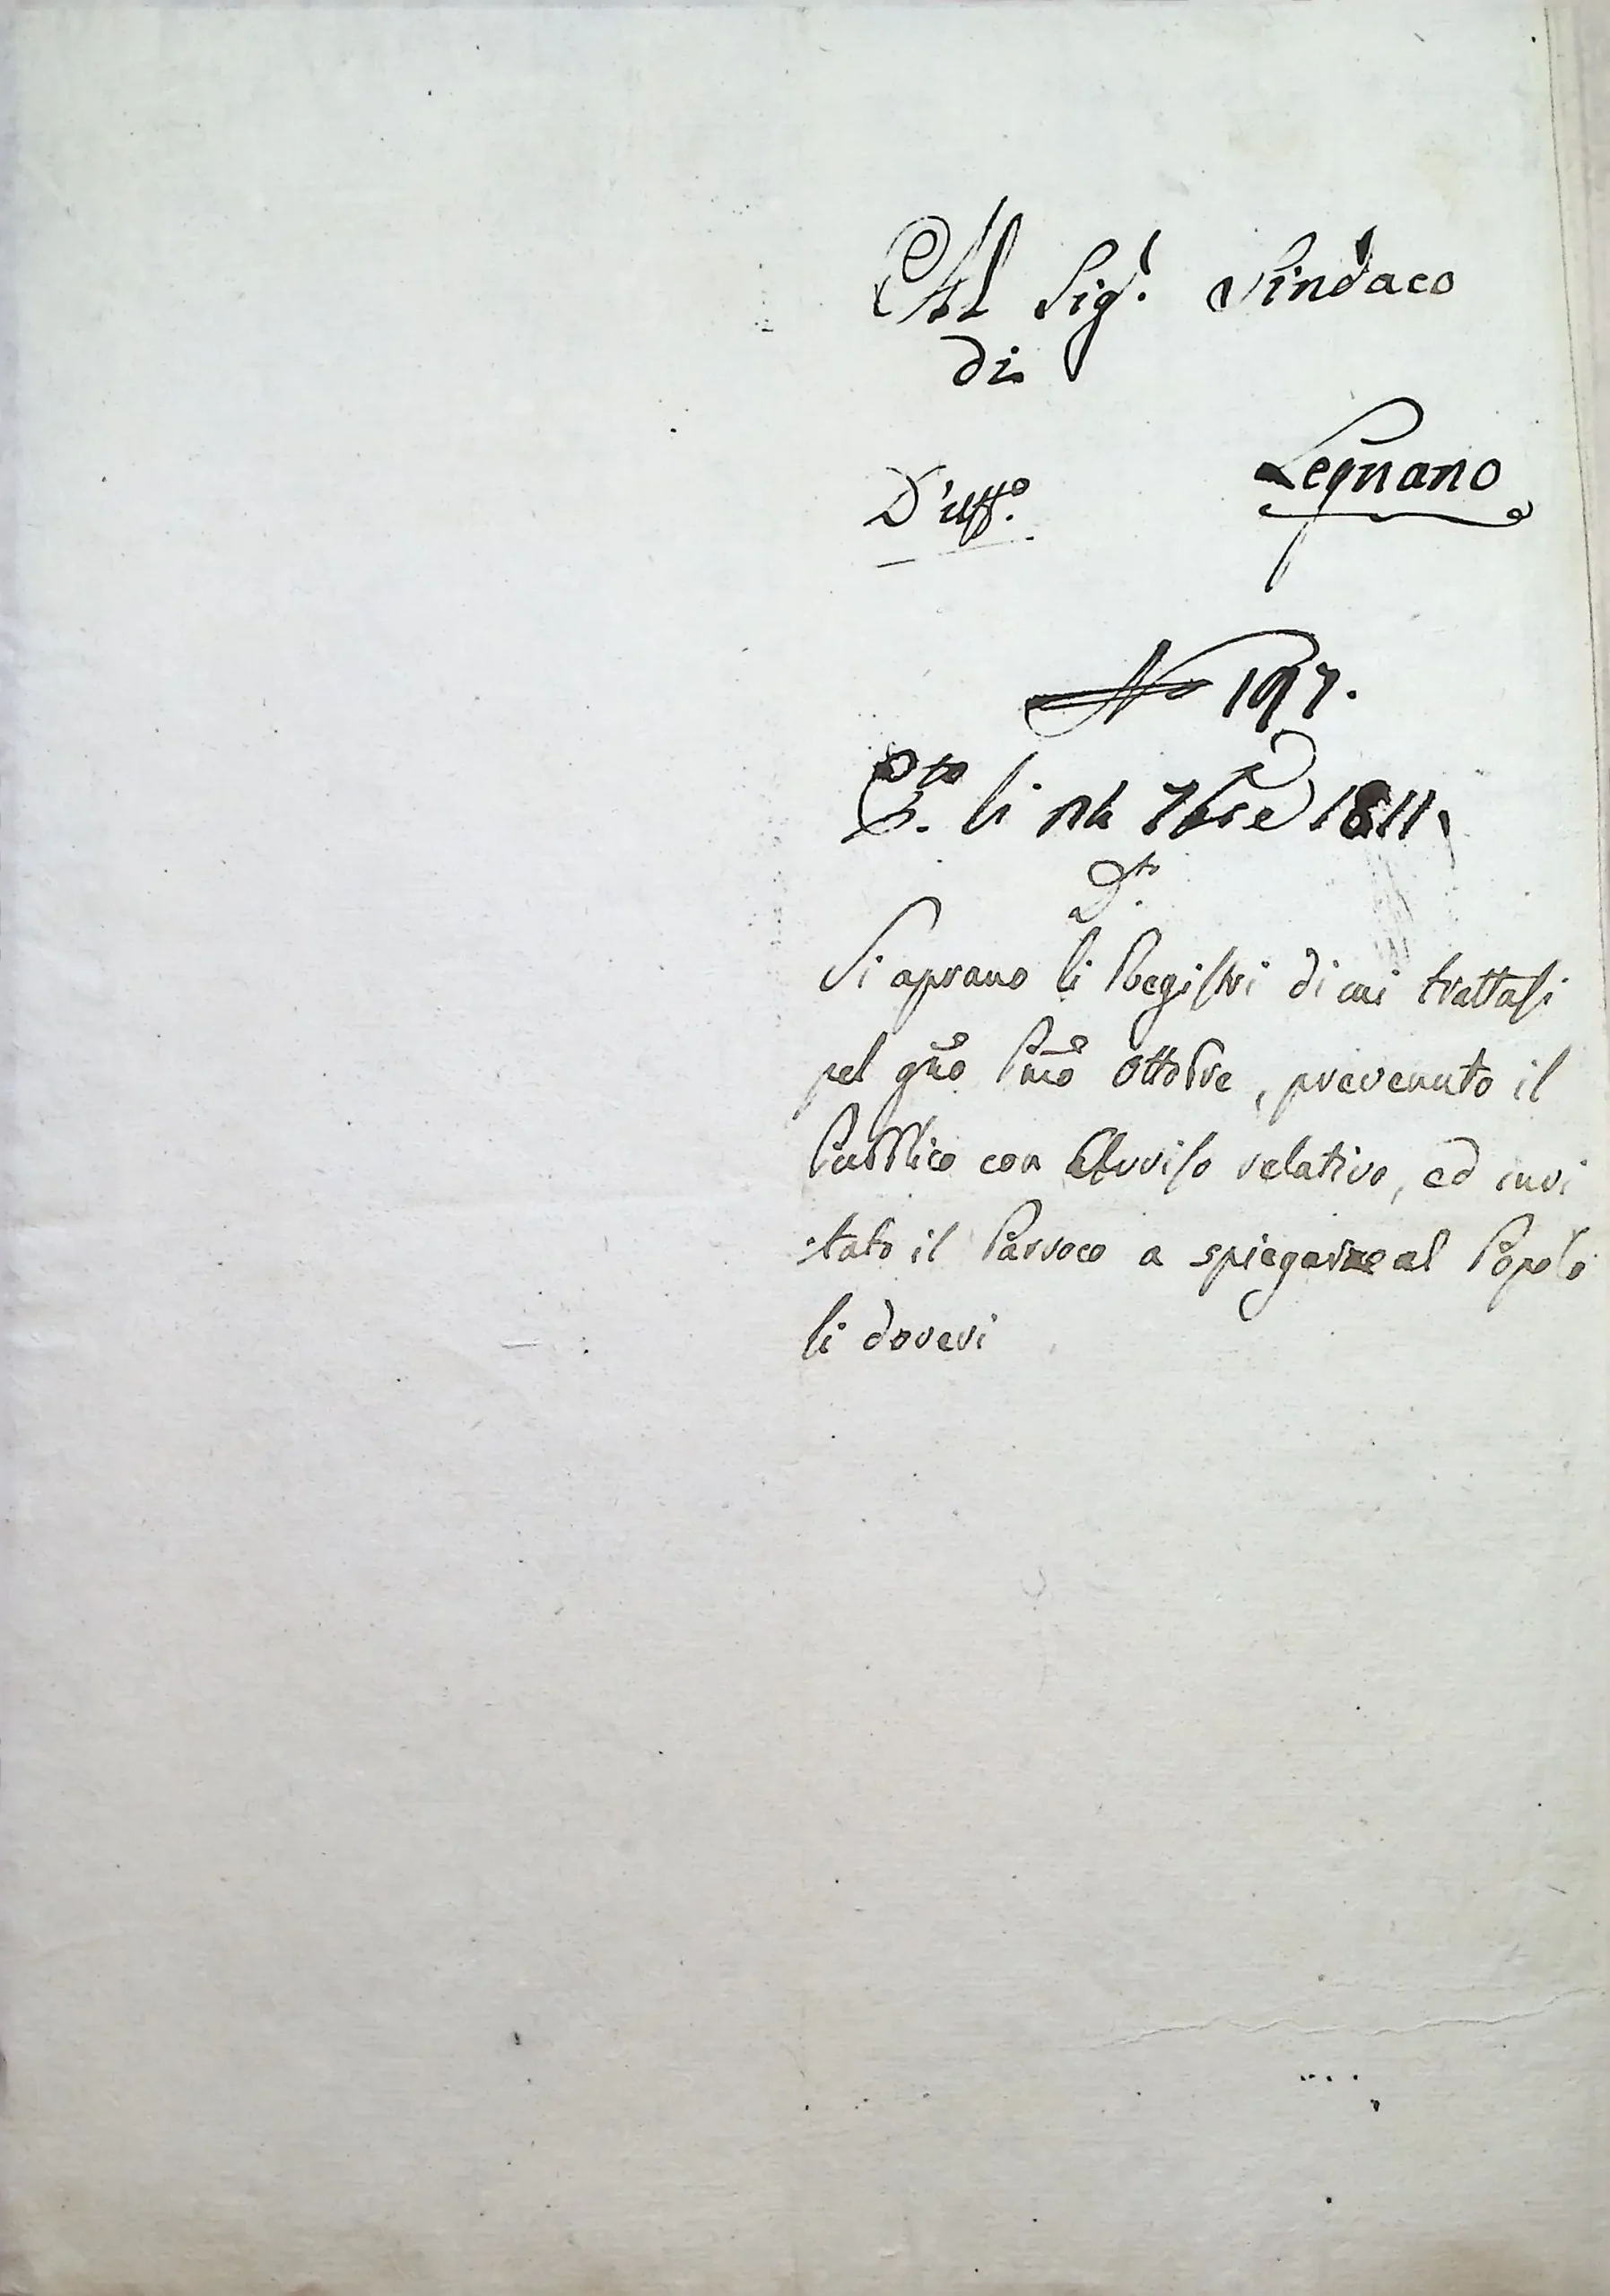 Al Sig.r Sindaco
di
Legnano
D'uff.o
No 197.
P.to li 24 7bre 1811.
D.to
Si aprano li Registri di cui trattasi
pel gno Pmo Ottobre, prevenuto il
Pubblico con Avviso relativo, ed invi
tato il Parroco a spiegarne al Popolo
li doveri